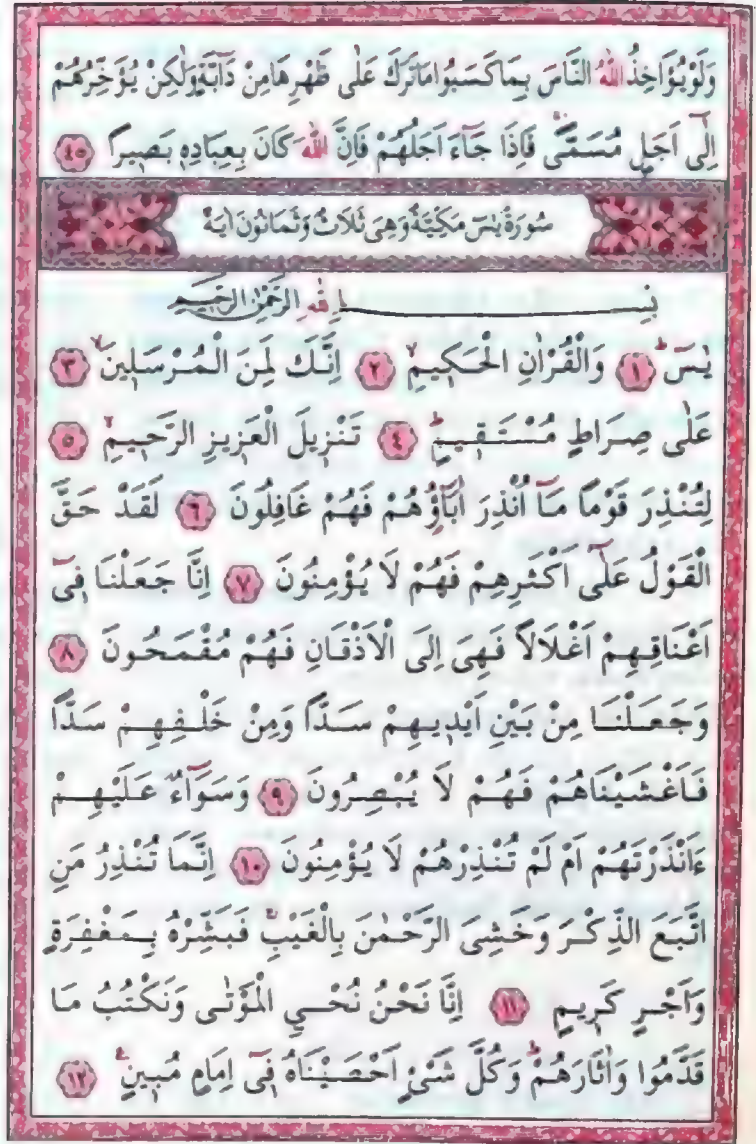 وَلَوْ يُؤَاخِذُ اللّٰهُ النَّاسَ بِمَا كَسَبُوا مَا تَرَكَ عَلٰى ظَهْرِهَا مِنْ دَٓابَّةٍ وَلٰكِنْ يُؤَخِّرُهُمْ
اِلٰٓى اَجَلٍ مُسَمًّىۚ فَاِذَا جَٓاءَ اَجَلُهُمْ فَاِنَّ اللّٰهَ كَانَ بِعِبَادِه۪ بَص۪يرًا ﴿٤٥﴾
سُورَةُ يٰسٓ مَكِّيَّةٌ وَهِىَ ثَلَاثٌ وَثَمَانُونَ اٰيَةً
بِسْمِ اللّٰهِ الرَّحْمٰنِ الرَّح۪يمِ
يٰسٓۜ ﴿١﴾ وَالْقُرْاٰنِ الْحَك۪يمِۙ ﴿٢﴾ اِنَّكَ لَمِنَ الْمُرْسَل۪ينَۙ ﴿٣﴾
عَلٰى صِرَاطٍ مُسْتَق۪يمٍۜ ﴿٤﴾ تَنْز۪يلَ الْعَز۪يزِ الرَّح۪يمِۙ ﴿٥﴾
لِتُنْذِرَ قَوْمًا مَٓا اُنْذِرَ اٰبَٓاؤُ۬هُمْ فَهُمْ غَافِلُونَ ﴿٦﴾ لَقَدْ حَقَّ
الْقَوْلُ عَلٰٓى اَكْثَرِهِمْ فَهُمْ لَا يُؤْمِنُونَ ﴿٧﴾ اِنَّا جَعَلْنَا ف۪ٓى
اَعْنَاقِهِمْ اَغْلَالًا فَهِىَ اِلَى الْاَذْقَانِ فَهُمْ مُقْمَحُونَ ﴿٨﴾
وَجَعَلْنَا مِنْ بَيْنِ اَيْد۪يهِمْ سَدًّا وَمِنْ خَلْفِهِمْ سَدًّا
فَاَغْشَيْنَاهُمْ فَهُمْ لَا يُبْصِرُونَ ﴿٩﴾ وَسَوَٓاءٌ عَلَيْهِمْ
ءَاَنْذَرْتَهُمْ اَمْ لَمْ تُنْذِرْهُمْ لَا يُؤْمِنُونَ ﴿١٠﴾ اِنَّمَا تُنْذِرُ مَنِ
اتَّبَعَ الذِّكْرَ وَخَشِىَ الرَّحْمٰنَ بِالْغَيْبِۚ فَبَشِّرْهُ بِمَغْفِرَةٍ
وَاَجْرٍ كَر۪يمٍ ﴿١١﴾ اِنَّا نَحْنُ نُحْيِ الْمَوْتٰى وَنَكْتُبُ مَا
قَدَّمُوا وَاٰثَارَهُمْۜ وَكُلَّ شَىْءٍ اَحْصَيْنَاهُ ف۪ٓى اِمَامٍ مُب۪ينٍ۟ ﴿١٢﴾